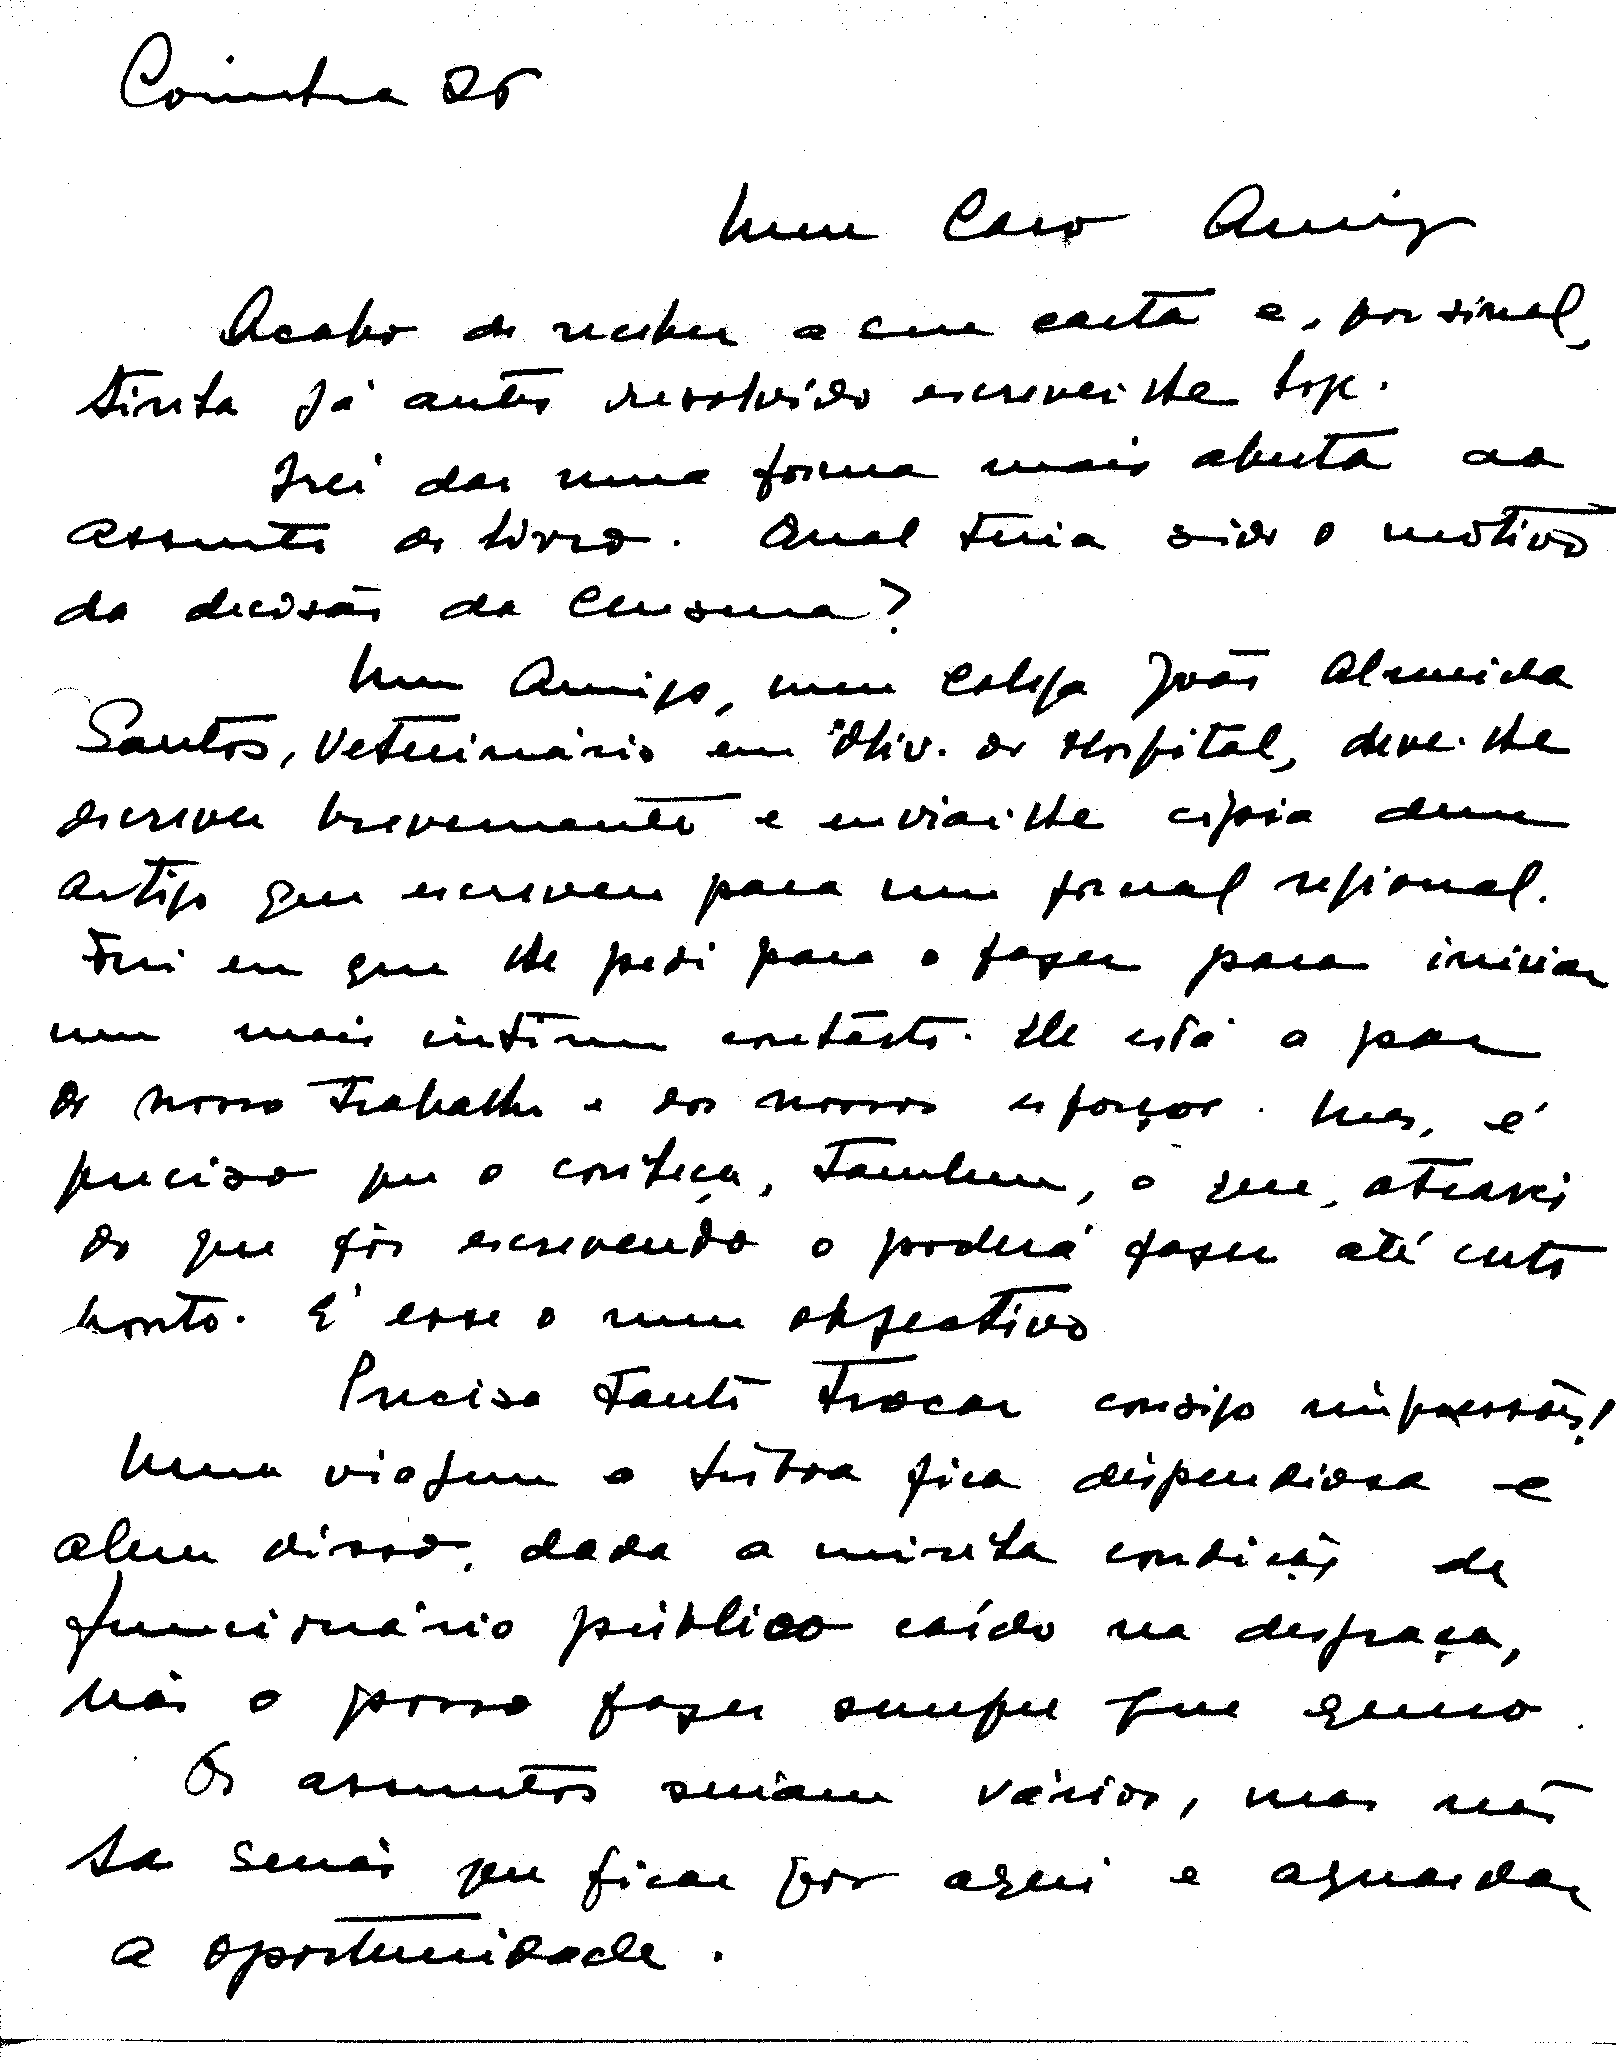 Coimbra 26
Meu Caro Amigo
Acabo de receber a sua carta e, por sinal,
tinha já antes resolvido escrever-lhe hoje.
Irei dar uma forma mais aberta ao
assunto do livro. Qual teria sido o motivo
da decisão da Censura?
Um Amigo, meu colega João Almeida
Santos, Veterinário em Oliv. do Hospital, deve-lhe
escrever brevemente e enviar-lhe cópia dum
artigo que escreveu para um jornal regional.
Fui eu que lhe pedi para o fazer para iniciar
um mais íntimo contacto. Ele está a par
do nosso trabalho e dos nossos esforços. Mas, é
preciso que o conheça, tambem, o que, através
do que fôr escrevendo o poderá fazer até certo
ponto. É esse o meu objectivo
Preciso tanto trocar consigo impressões!
Uma viagem a Lisboa fica dispendiosa e
alem disso, dada a minha condição de
funcionário público caído na desgraça,
não o posso fazer sempre que quero.
Os assuntos seriam vários, mas não
há senão que ficar por aqui e aguardar
a oportunidade.